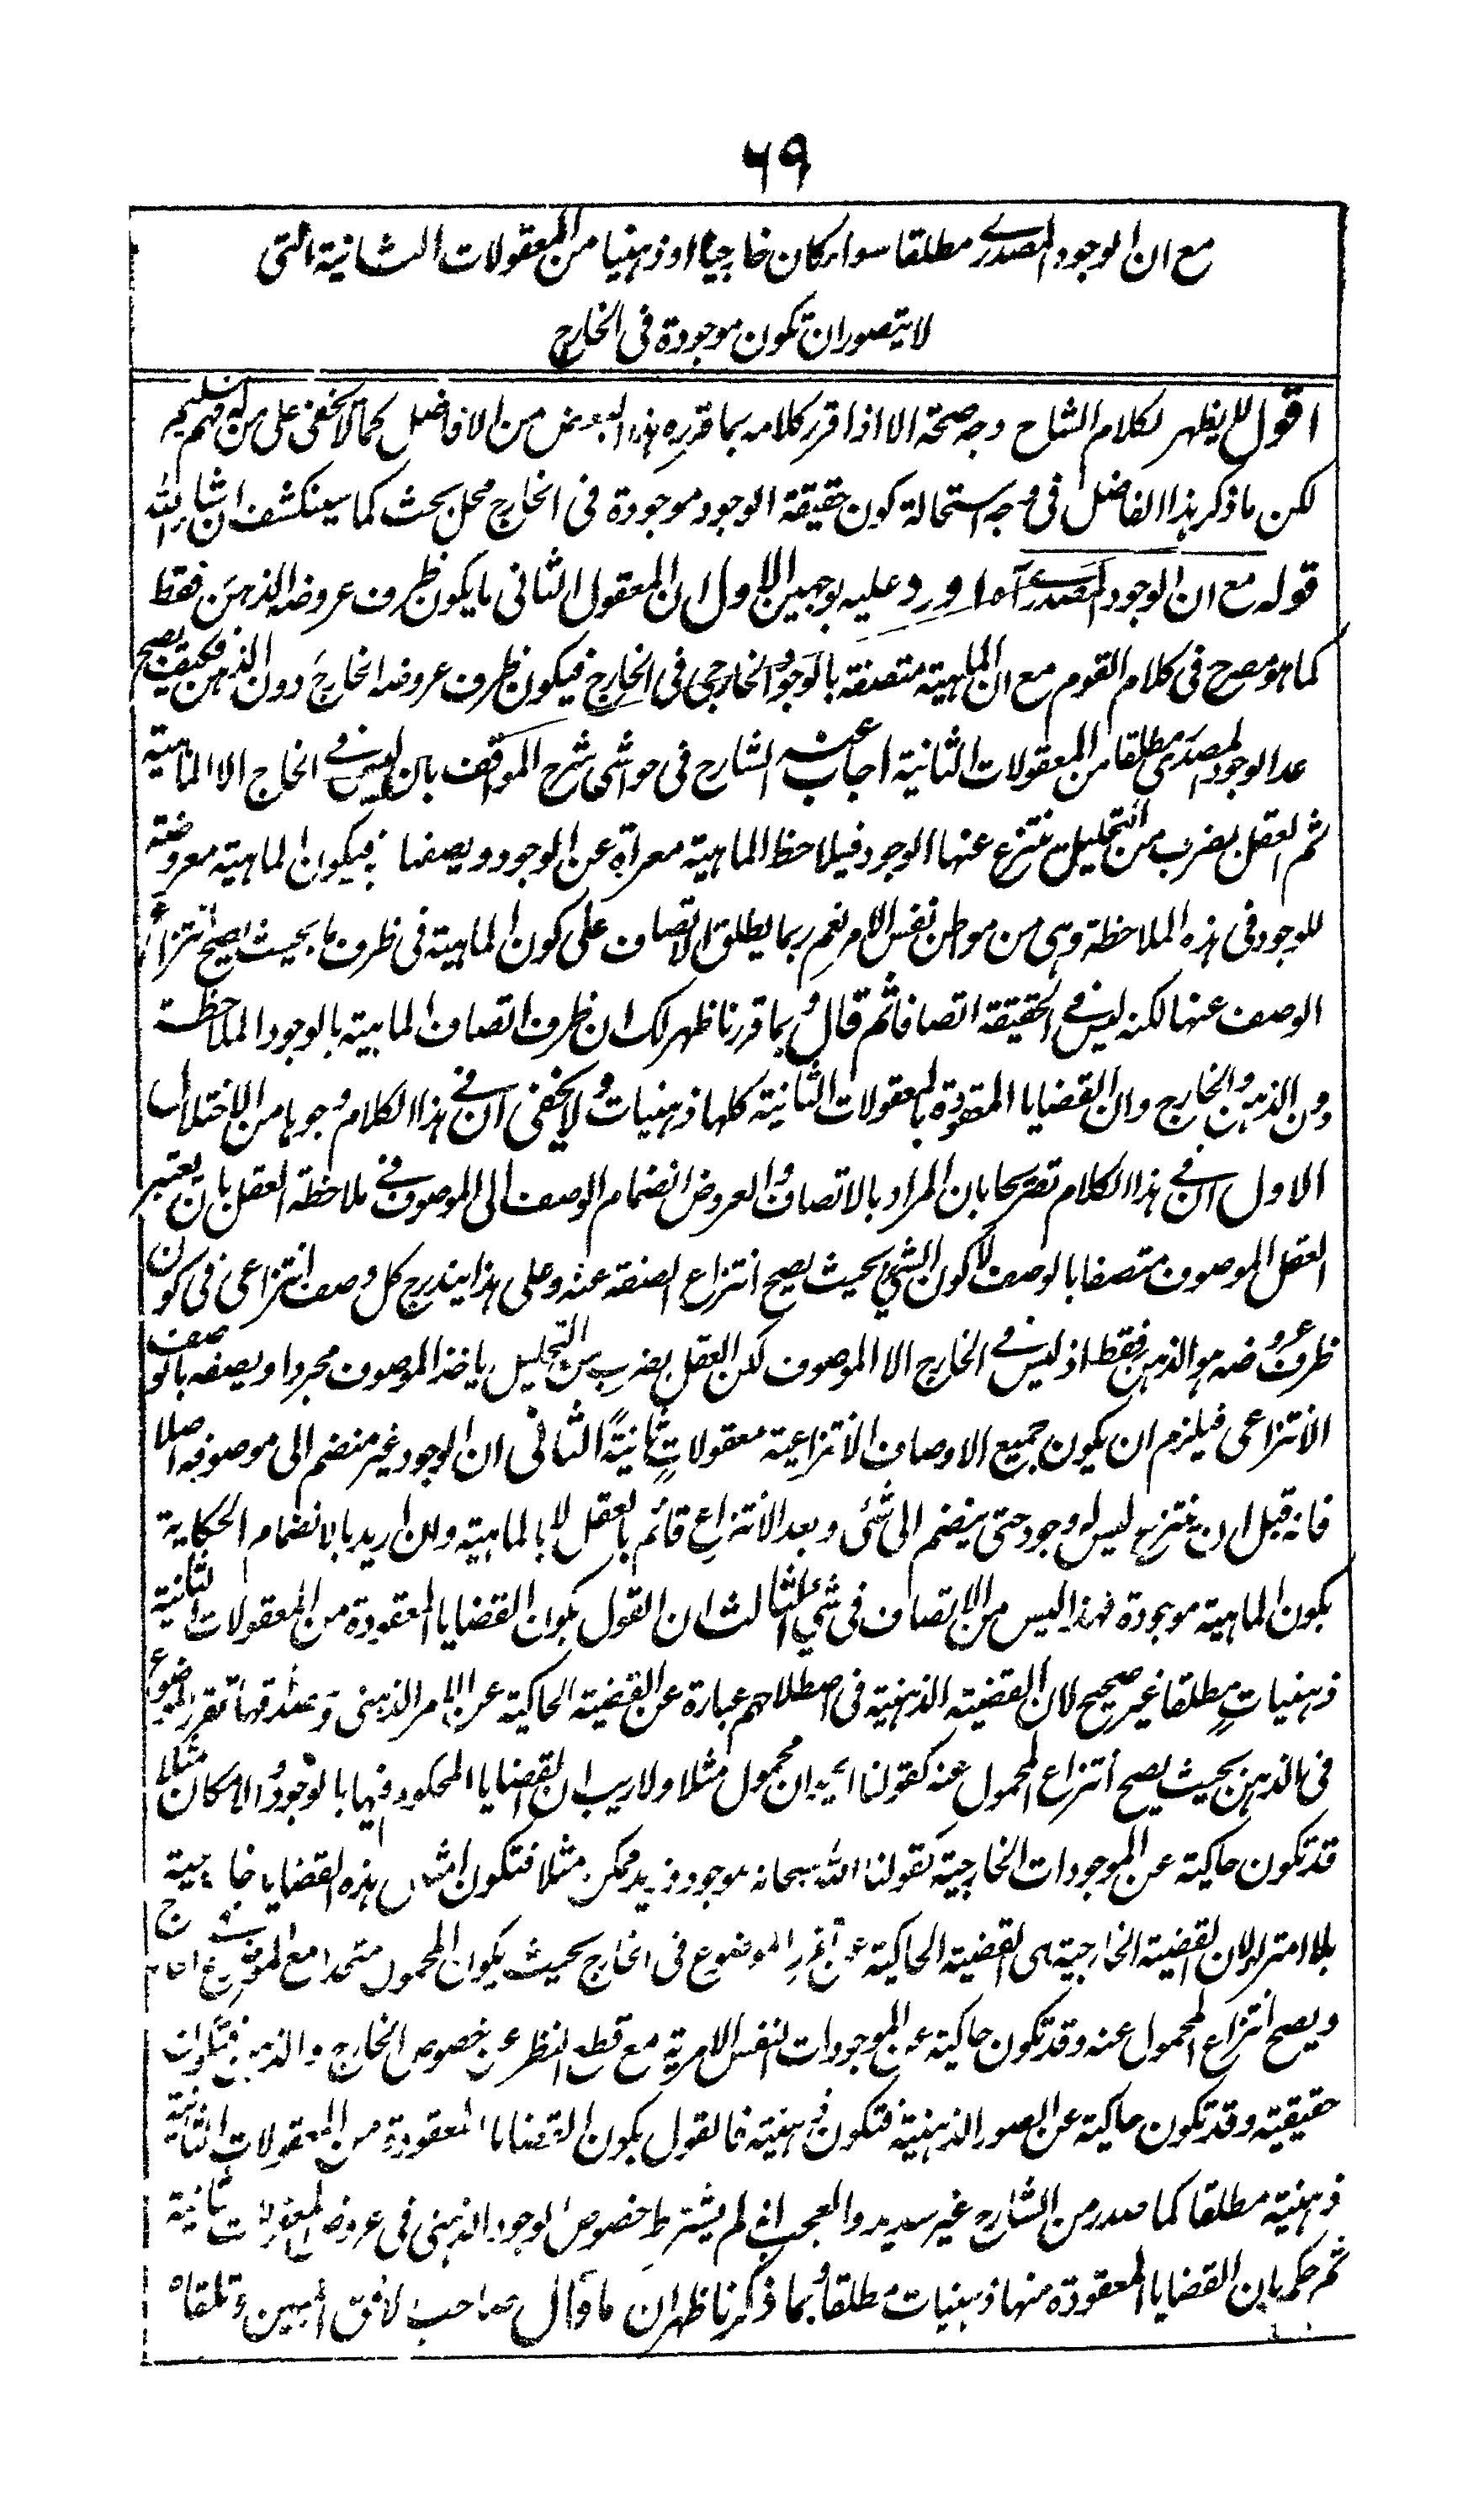 ٦٩
مع ان الوجود المصدرى مطلقا سواء كان خارجيا او ذهنيا من المعقولات الثانية التى
لا يتصور ان تكون موجودة فى الخارج
اقول لا يظهر لكلام الشارح وجه صحة الا اذا قرر كلامه بما قرره هذا البعض من الافاضل كما لا يخفى على من له فهم سليم
لكن ما ذكر هذا الفاضل فى وجه استحالة كون حقيقة الوجود موجودة فى الخارج محل بحث كما سينكشف ان شاء الله
قوله مع ان الوجود المصدرى آه اورد عليه بوجهين الاول ان المعقول الثانى ما يكون ظرف عروضه الذهن فقط
كما هو مصرح فى كلام القوم مع ان الماهية متصفة بالوجود الخارجى فى الخارج فيكون ظرف عروضه الخارج دون الذهن فكيف يصح
عد الوجود المصدرى مطلقا من المعقولات الثانية اجاب عنه الشارح فى حواشى شرح المواقف بان ليس فى الخارج الا الماهية
ثم العقل بضرب من التحليل ينتزع عنها الوجود فيلاحظ الماهية معراة عن الوجود ويصفها به فيكون الماهية معروضة
للوجود فى هذه الملاحظة وهى من مواطن نفس الامر نعم ربما يطلق الاتصاف على كون الماهية فى ظرف ما بحيث يصح انتزاع
الوصف عنها لكنه ليس فى الحقيقة اتصافا ثم قال وبما قررنا ظهر لك ان ظرف اتصاف الماهية بالوجود الملاحظة
دون الذهن والخارج وان القضايا المعقودة بالمعقولات الثانية كلها ذهنيات ولا يخفى ان فى هذا الكلام وجوها من الاختلال
الاول ان فى هذا الكلام تصريحا بان المراد بالاتصاف والعروض انضمام الوصف الى الموصوف فى ملاحظة العقل بان يعتبر
العقل الموصوف متصفا بالوصف لا كون الشئ بحيث يصح انتزاع الصفة عنه وعلى هذا يندرج كل وصف انتزاعى فى كون
ظرف عروضه هو الذهن فقط اذ ليس فى الخارج الا الموصوف لكن العقل بضرب من التحليل ياخذ الموصوف مجردا ويصفه بالوصف
الانتزاعى فيلزم ان يكون جميع الاوصاف الانتزاعية معقولاتٍ ثانيةً الثانى ان الوجود غير منضم الى موصوفه اصلا
فانه قبل ان ينتزع ليس له وجود حتى ينضم الى شئ وبعد الانتزاع قائم بالعقل لا بالماهية ولئن اريد بالانضمام الحكاية
بكون الماهية موجودة فهذا ليس من الاتصاف فى شئ الثالث ان القول بكون القضايا المعقودة من المعقولات الثانية
ذهنياتٍ مطلقا غير صحيح لان القضية الذهنية فى اصطلاحهم عبارة عن القضية الحاكية عن الامر الذهنى وصدقها تقرر الموضوع
فى الذهن بحيث يصح انتزاع المحمول عنه كقولنا الحيوان محمول مثلا ولا ريب ان القضايا المحكوم فيها بالوجود والامكان مثلا
قد تكون حاكية عن الموجودات الخارجية كقولنا الله سبحانه موجود وزيد ممكن مثلا فتكون امثال هذه القضايا خارجية
بلا امتراء لان القضية الخارجية هى القضية الحاكية عن تقرر الموضوع فى الخارج بحيث يكون المحمول متحدا مع الموضوع فى الخارج
ويصح انتزاع المحمول عنه وقد تكون حاكية عن الموجودات النفس الامرية مع قطع النظر عن خصوص الخارج والذهن فتكون
حقيقية وقد تكون حاكية عن الصور الذهنية فتكون ذهنية فالقول بكون القضايا المعقودة من المعقولات الثانية
ذهنية مطلقا كما صدر من الشارح غير سديد والعجب انه لم يشترط خصوص الوجود الذهنى فى عروض المعقولات الثانية
ثم حكم بان القضايا المعقودة منها ذهنيات مطلقا وبما ذكرنا ظهر ان ما قال صاحب الافق المبين وتلقاه